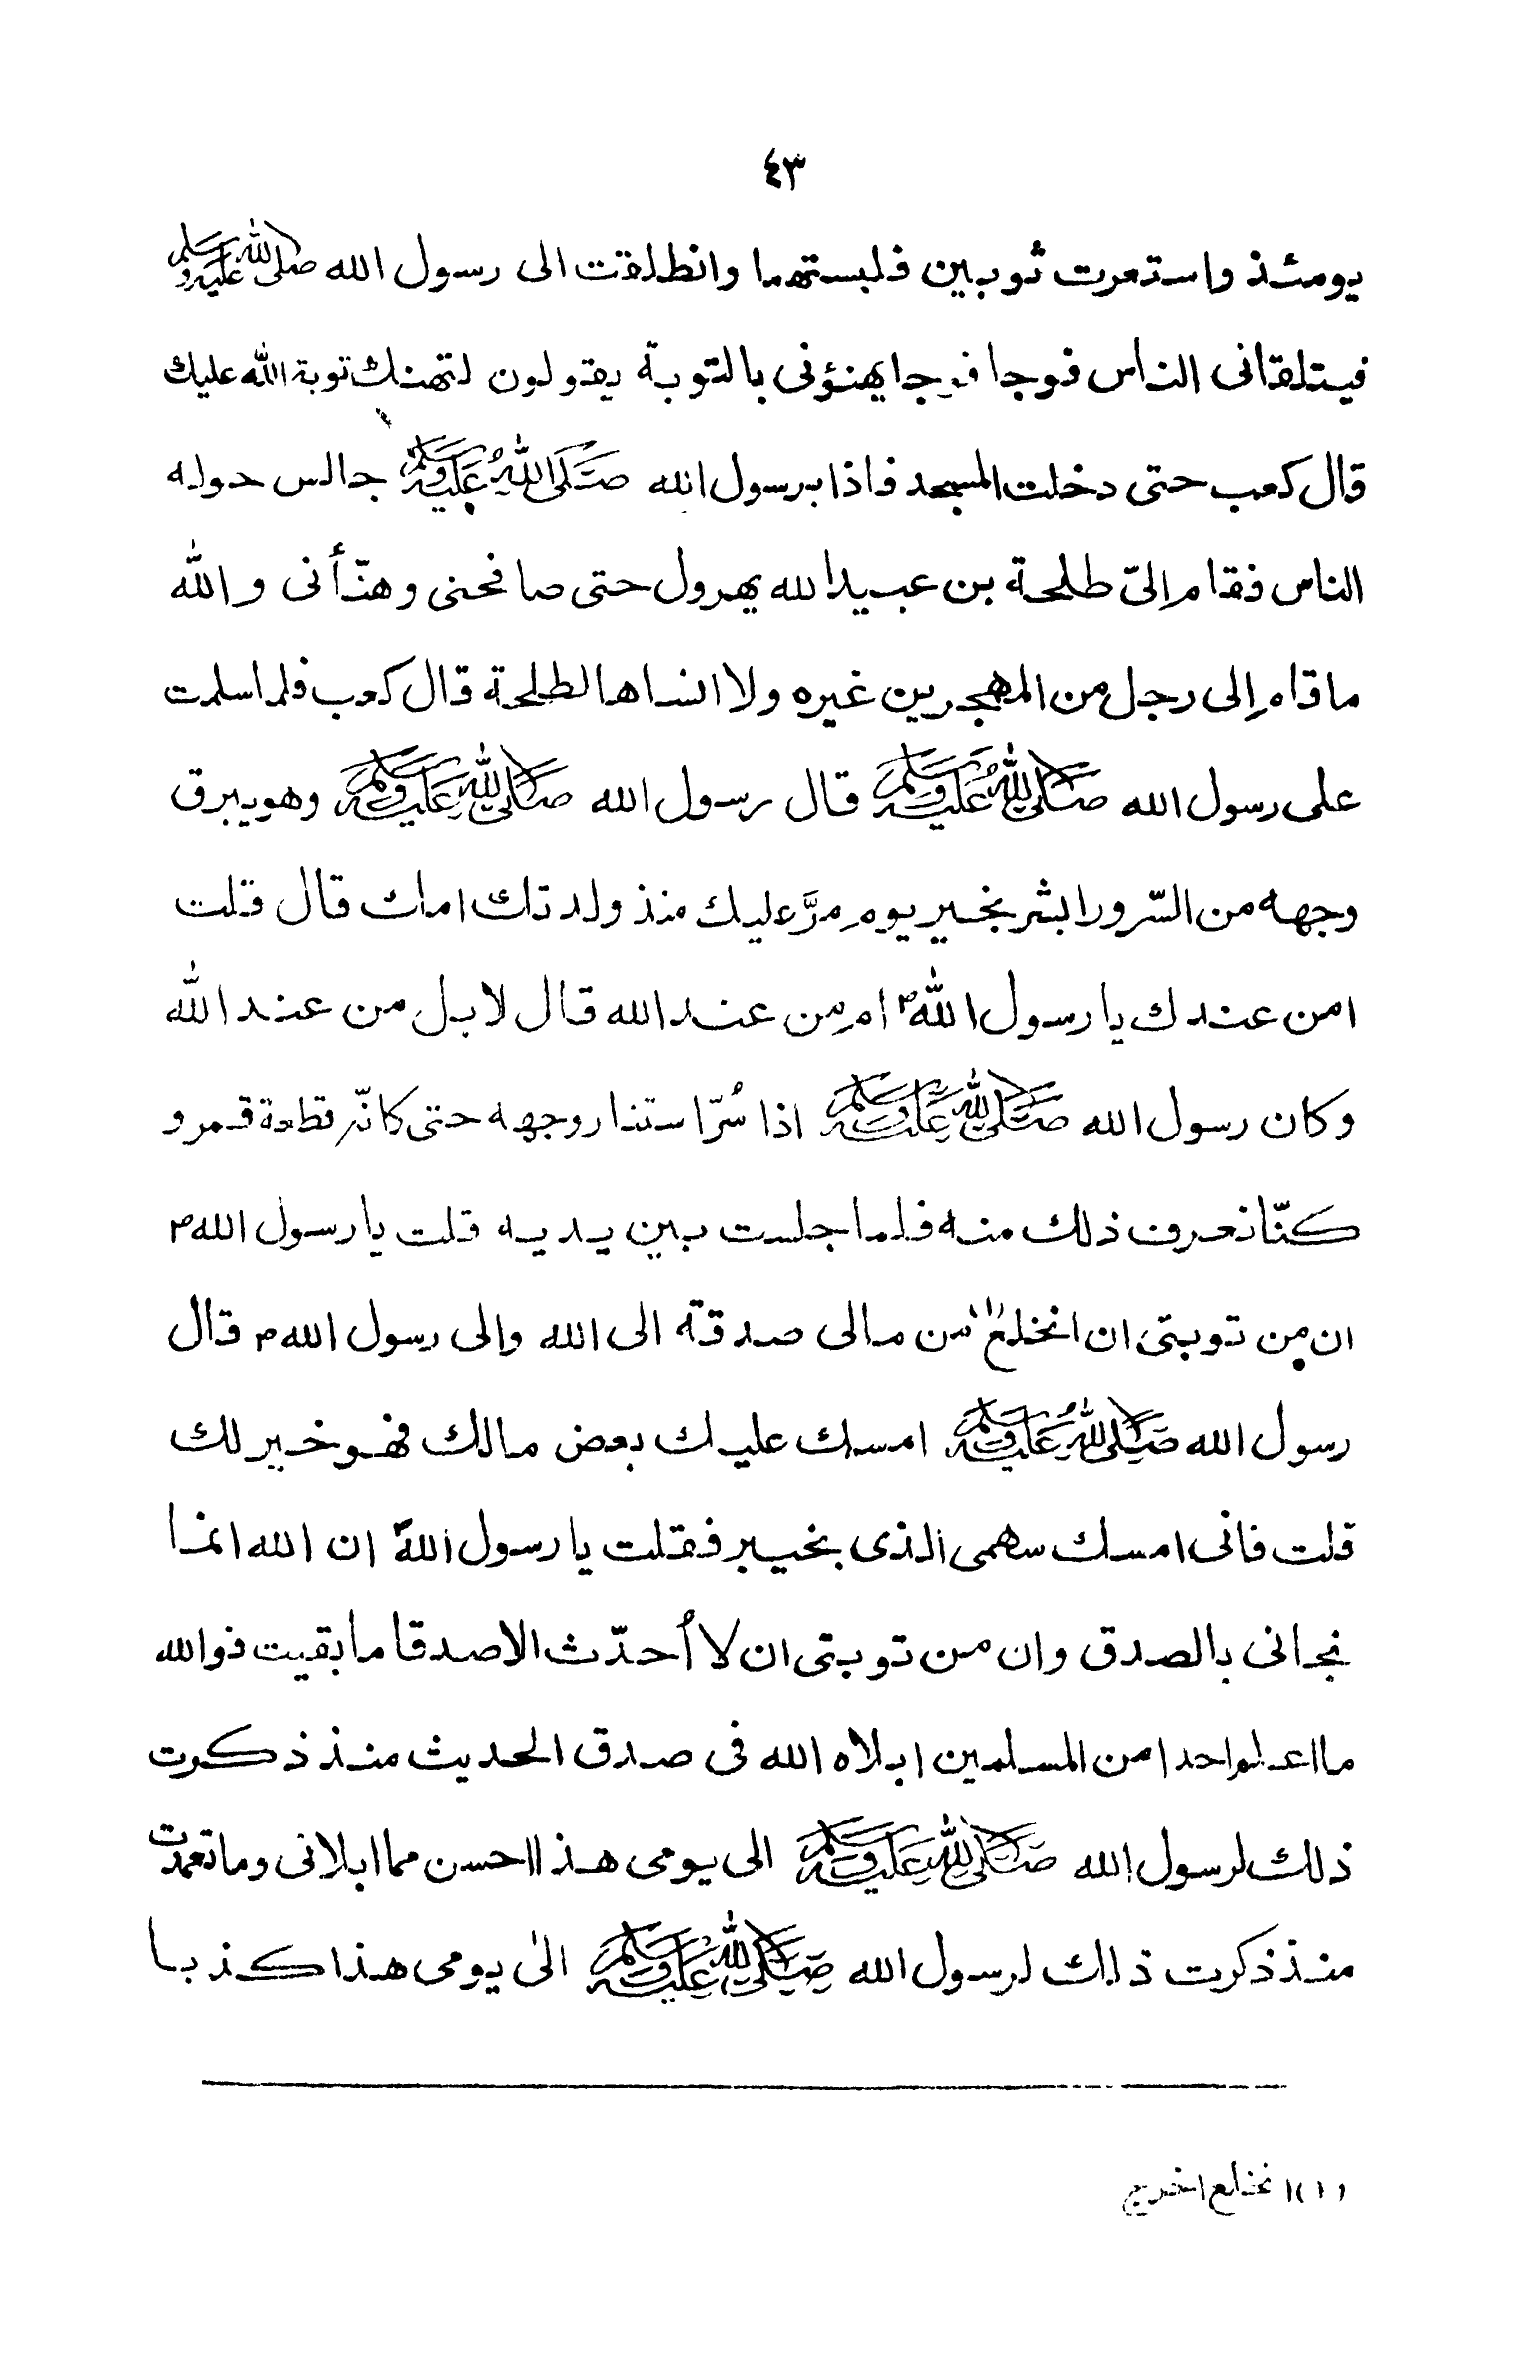 ٤٣
يومئذ واستعرت ثوبين فلبستهما وانطلقت الى رسول الله صلى الله عليه وسلم
فيتلقانى الناس فوجا فوجا يهنؤنى بالتوبة يقولون لتهنك توبة الله عليك
قال كعب حتى دخلت المسجد فاذا برسول الله صلى الله عليه وسلم جالس حوله
الناس فقام الىّ طلحة بن عبيد الله يهرول حتى صافحنى وهنّأنى والله
ما قام إلى رجل من المهجرين غيره ولا انساها لطلحة قال كعب فلما سلمت
على رسول الله صَلَّى اللهُ عَلَيْهِ وَسَلَّمَ قال رسول الله صَلَّى اللهُ عَلَيْهِ وَسَلَّمَ وهو يبرق
وجهه من السّرور ابشر بخير يومٍ مرَّ عليك منذ ولدتك امك قال قلت
امن عندك يا رسول اللهؐ ام من عند الله قال لا بل من عند الله
وكان رسول الله صَلَّى اللهُ عَلَيْهِ وَسَلَّمَ اذا سُرّ استنار وجهه حتى كانّه قطعة قمر و
كنّا نعرف ذلك منه فلما جلست بين يديه قلت يا رسول الله م
ان من توبتى ان انخلع(١) من مالى صدقة الى الله وإلى رسول الله م قال
رسول الله صَلَّى اللهُ عَلَيْهِ وَسَلَّمَ امسك عليك بعض مالك فهو خير لك
قلت فانى امسك سهمى الذى بخيبر فقلت يا رسول اللهؐ ان الله انما
نجانى بالصدق وان من توبتى ان لا أُحدّث الا صدقا ما بقيت فوالله
ما اعلم احدا من المسلمين ابلاه الله فى صدق الحديث منذ ذكرت
ذلك لرسول الله صَلَّى اللهُ عَلَيْهِ وَسَلَّمَ الى يومى هذا احسن مما ابلانى وما تعمدت
منذ ذكرت ذلك لرسول الله صَلَّى اللهُ عَلَيْهِ وَسَلَّمَ الى يومى هذا كذبا
(١) انخلع اخرج